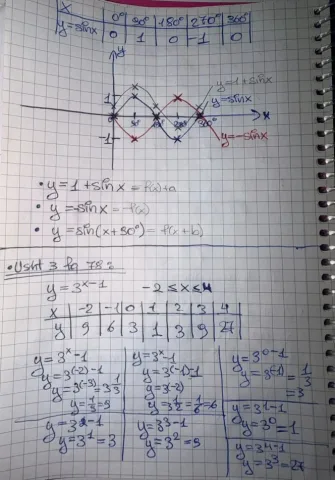 x | 0° | 90° | 180° | 270° | 360°
y=sinx | 0 | 1 | 0 | -1 | 0
y
y=1+sinx
1
y=sinx
x
-1
y=-sinx
• y=1+sinx=f(x)+a
• y=-sinx=-f(x)
• y=sin(x+90°)=f(x+b)
• Usht 3 fq 78.2
y=3^(x-1) -2≤x≤4
x | -2 | -1 | 0 | 1 | 2 | 3 | 4
y | 9 | 6 | 3 | 1 | 3 | 9 | 27
y=3^x-1
y=3^(-2)-1
y=3^(-3)=3 1/3
y=1/3=9
y=3^x-1
y=3^(-1)-1
y=3^(-2)
y=3 1/2=1/6=6
y=3^(0-1)
y=3^(-1)=1/3=3
y=3^(1-1)
y=3^0=1
y=3^(2-1)
y=3^1=3
y=3^(3-1)
y=3^2=9
y=3^(4-1)
y=3^3=27